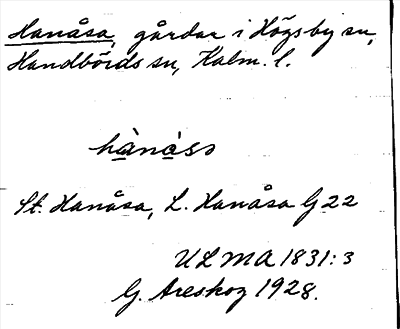 Hanåsa, gårdar i Högsby sn,
Handbörds sn, Kalm. l.
hànàsɔ
St. Hanåsa, L. Hanåsa G 22
ULMA 1831:3
G. Areskog 1928.